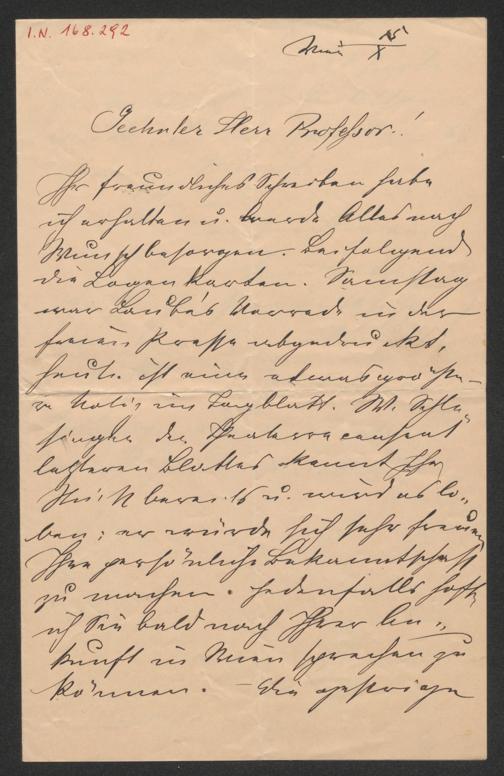 I.N. 168.292
Wien 15/X
Geehrter Herr Professor!
Ihr freundliches Schreiben habe
ich erhalten u. werde Alles nach
Wunsch besorgen. Beifolgend
die Logenkarten. Samstag
war Laube's Vorrede in der
freien Presse abgedruckt,
heute ist eine etwas größe-
re Notiz im Tagblatt. W. Schle-
singer der Theaterreferent
letzteren Blattes kennt Ihr
Stück bereits u. wird es lo-
ben; er würde sich sehr freuen
Ihre persönliche Bekanntschaft
zu machen. Jedenfalls hoffe
ich Sie bald nach Ihrer An-
kunft in Wien sprechen zu
können. – Die gestrige